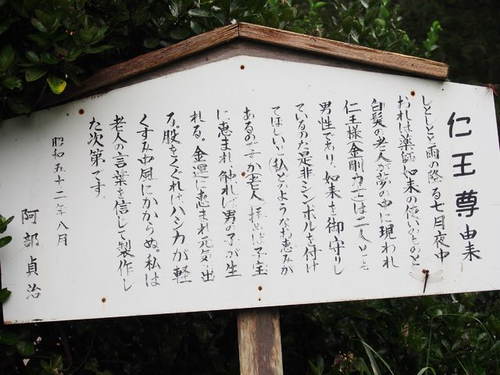 仁王尊由来
しとしとと雨の降る七月夜中
おれは薬師如来の使いとのと
白髪の老人が夢の中に現われ
仁王様(金剛力士)は二人とも
男性であり、如来を御守りし
ているのだ是非シンボルを付け
てほしいと(私)どのような恵みが
あるのですか(老人)拝めば子宝
に恵まれ、触れば男の子が生
れる、金運に恵まれ元気が出
る、股をくぐればハシカが軽
くすみ中風にかからぬ。私は
老人の言葉を信じて製作し
た次第です。
昭和五十二年八月
阿部貞治